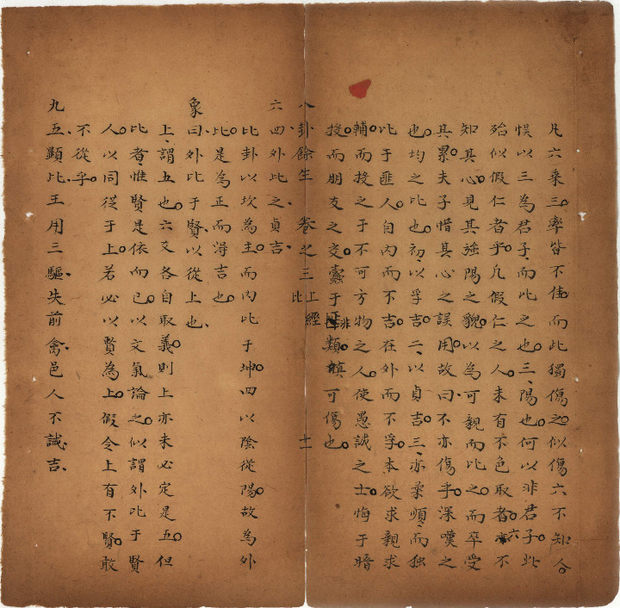 凡六乘三率皆不佳而此獨傷之似傷六不知人
悞以三為君子而此之也三陽也何以非君子此
殆似假仁者乎凡假仁之人未有不色取者六不
知其心見其強陽之貌以為可親而比之而卒受
其累夫子惜其心之誤用故曰不亦傷乎深嘆之
也均之比也初以孚吉二以貞吉三亦柔順而獨
比于匪人自内而不吉在外而不孚本欲求親求
輔而投之于不可方物之人使愚誠之士悔于暗
投而朋友之交濫于匪類非慎可傷也
八卦餘生 卷之三 上經 比 十一
六四外比之貞吉
此卦以坎為主而内比于坤四以陰從陽故為外
比是為正而得吉也
象曰外比于賢以從上也
上謂五也六爻各自取義則上亦未必定是五但
比者惟賢是依而已以文氣論之似謂外比于賢
人以同從于上若必以賢為上假令上有不賢敢
不從乎
九五顯比王用三驅失前禽邑人不誡吉